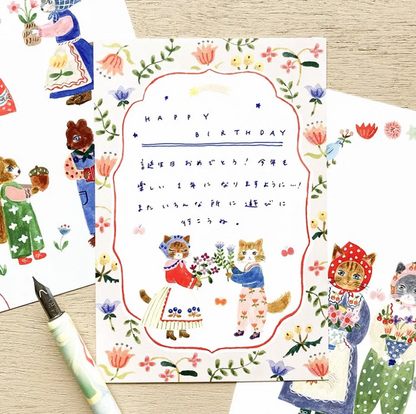 HAPPY
BIRTHDAY
誕生日おめでとう！今年も
楽しい1年になりますように…！
またいろんな所に遊びに
行こうね。